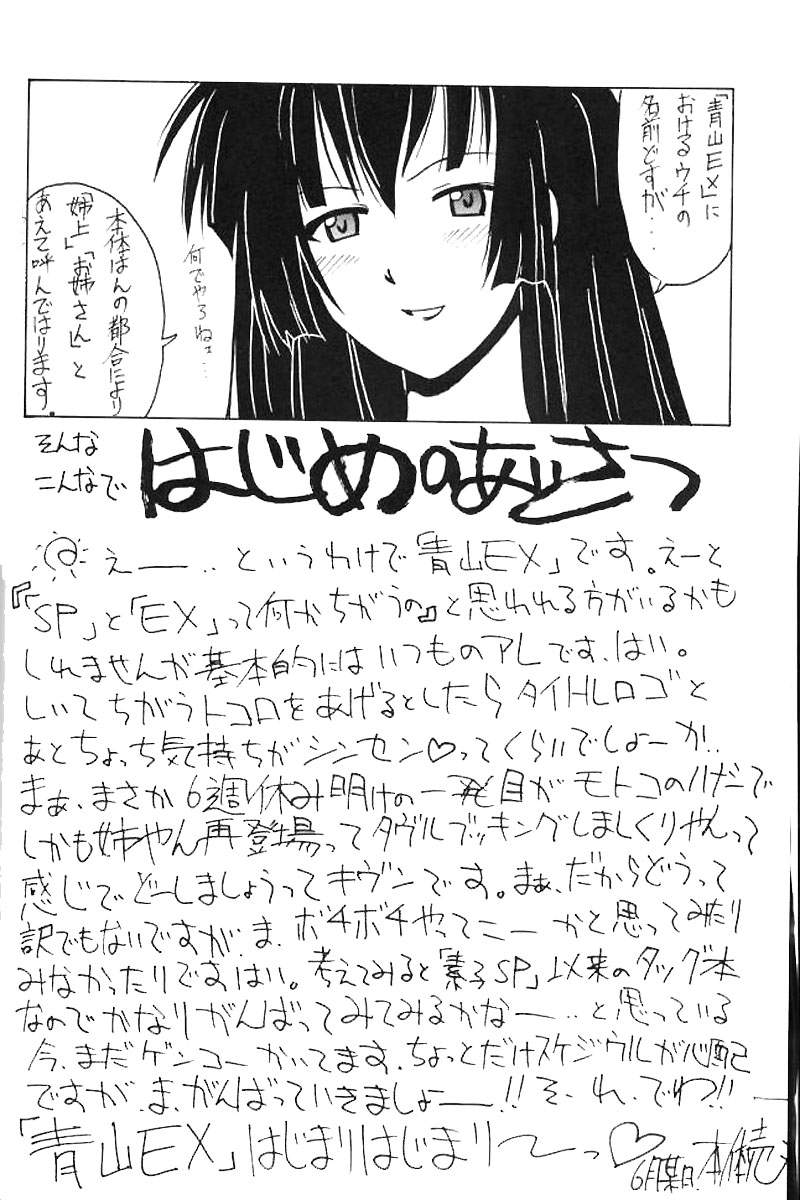 「青山EX」に
おけるウチの
名前どすが…
何でやろねェ…
本体はんの都合により
「姉上」「お姉さん」と
あえて呼んではります。
そんな
こんなで
はじめのあいさつ
えー…というわけで「青山EX」です。えーと
『「SP」と「EX」って何かちがうの』と思われる方がいるかも
しれませんが基本的にはいつものアレです、はい。
しいてちがうトコロをあげるとしたらタイトルロゴと
あとちょっち気持ちがシンセン♡ってくらいでしょーか..
まぁ、まさか6週休み明けの一発目がモトコのハダーで
しかも姉やん再登場ってダヴルブッキングしましくりやんって
感じでどーしましょうってキヴンです。まぁ、だからどうって
訳でもないですが、ま、ボチボチやってこーかと思ってみたり
みなかったりですはい。考えてみると「素子SP」以来のタッグ本
なのでかなりがんばってみてみるかなー…と思っている
今、まだゲンコーかいてます、ちょっとだけスケジウルが心配
ですが、ま、がんばっていきましょー!!そ、れ、でわ!!
「青山EX」はじまりはじまり〜っ♡
6月某日、本体売